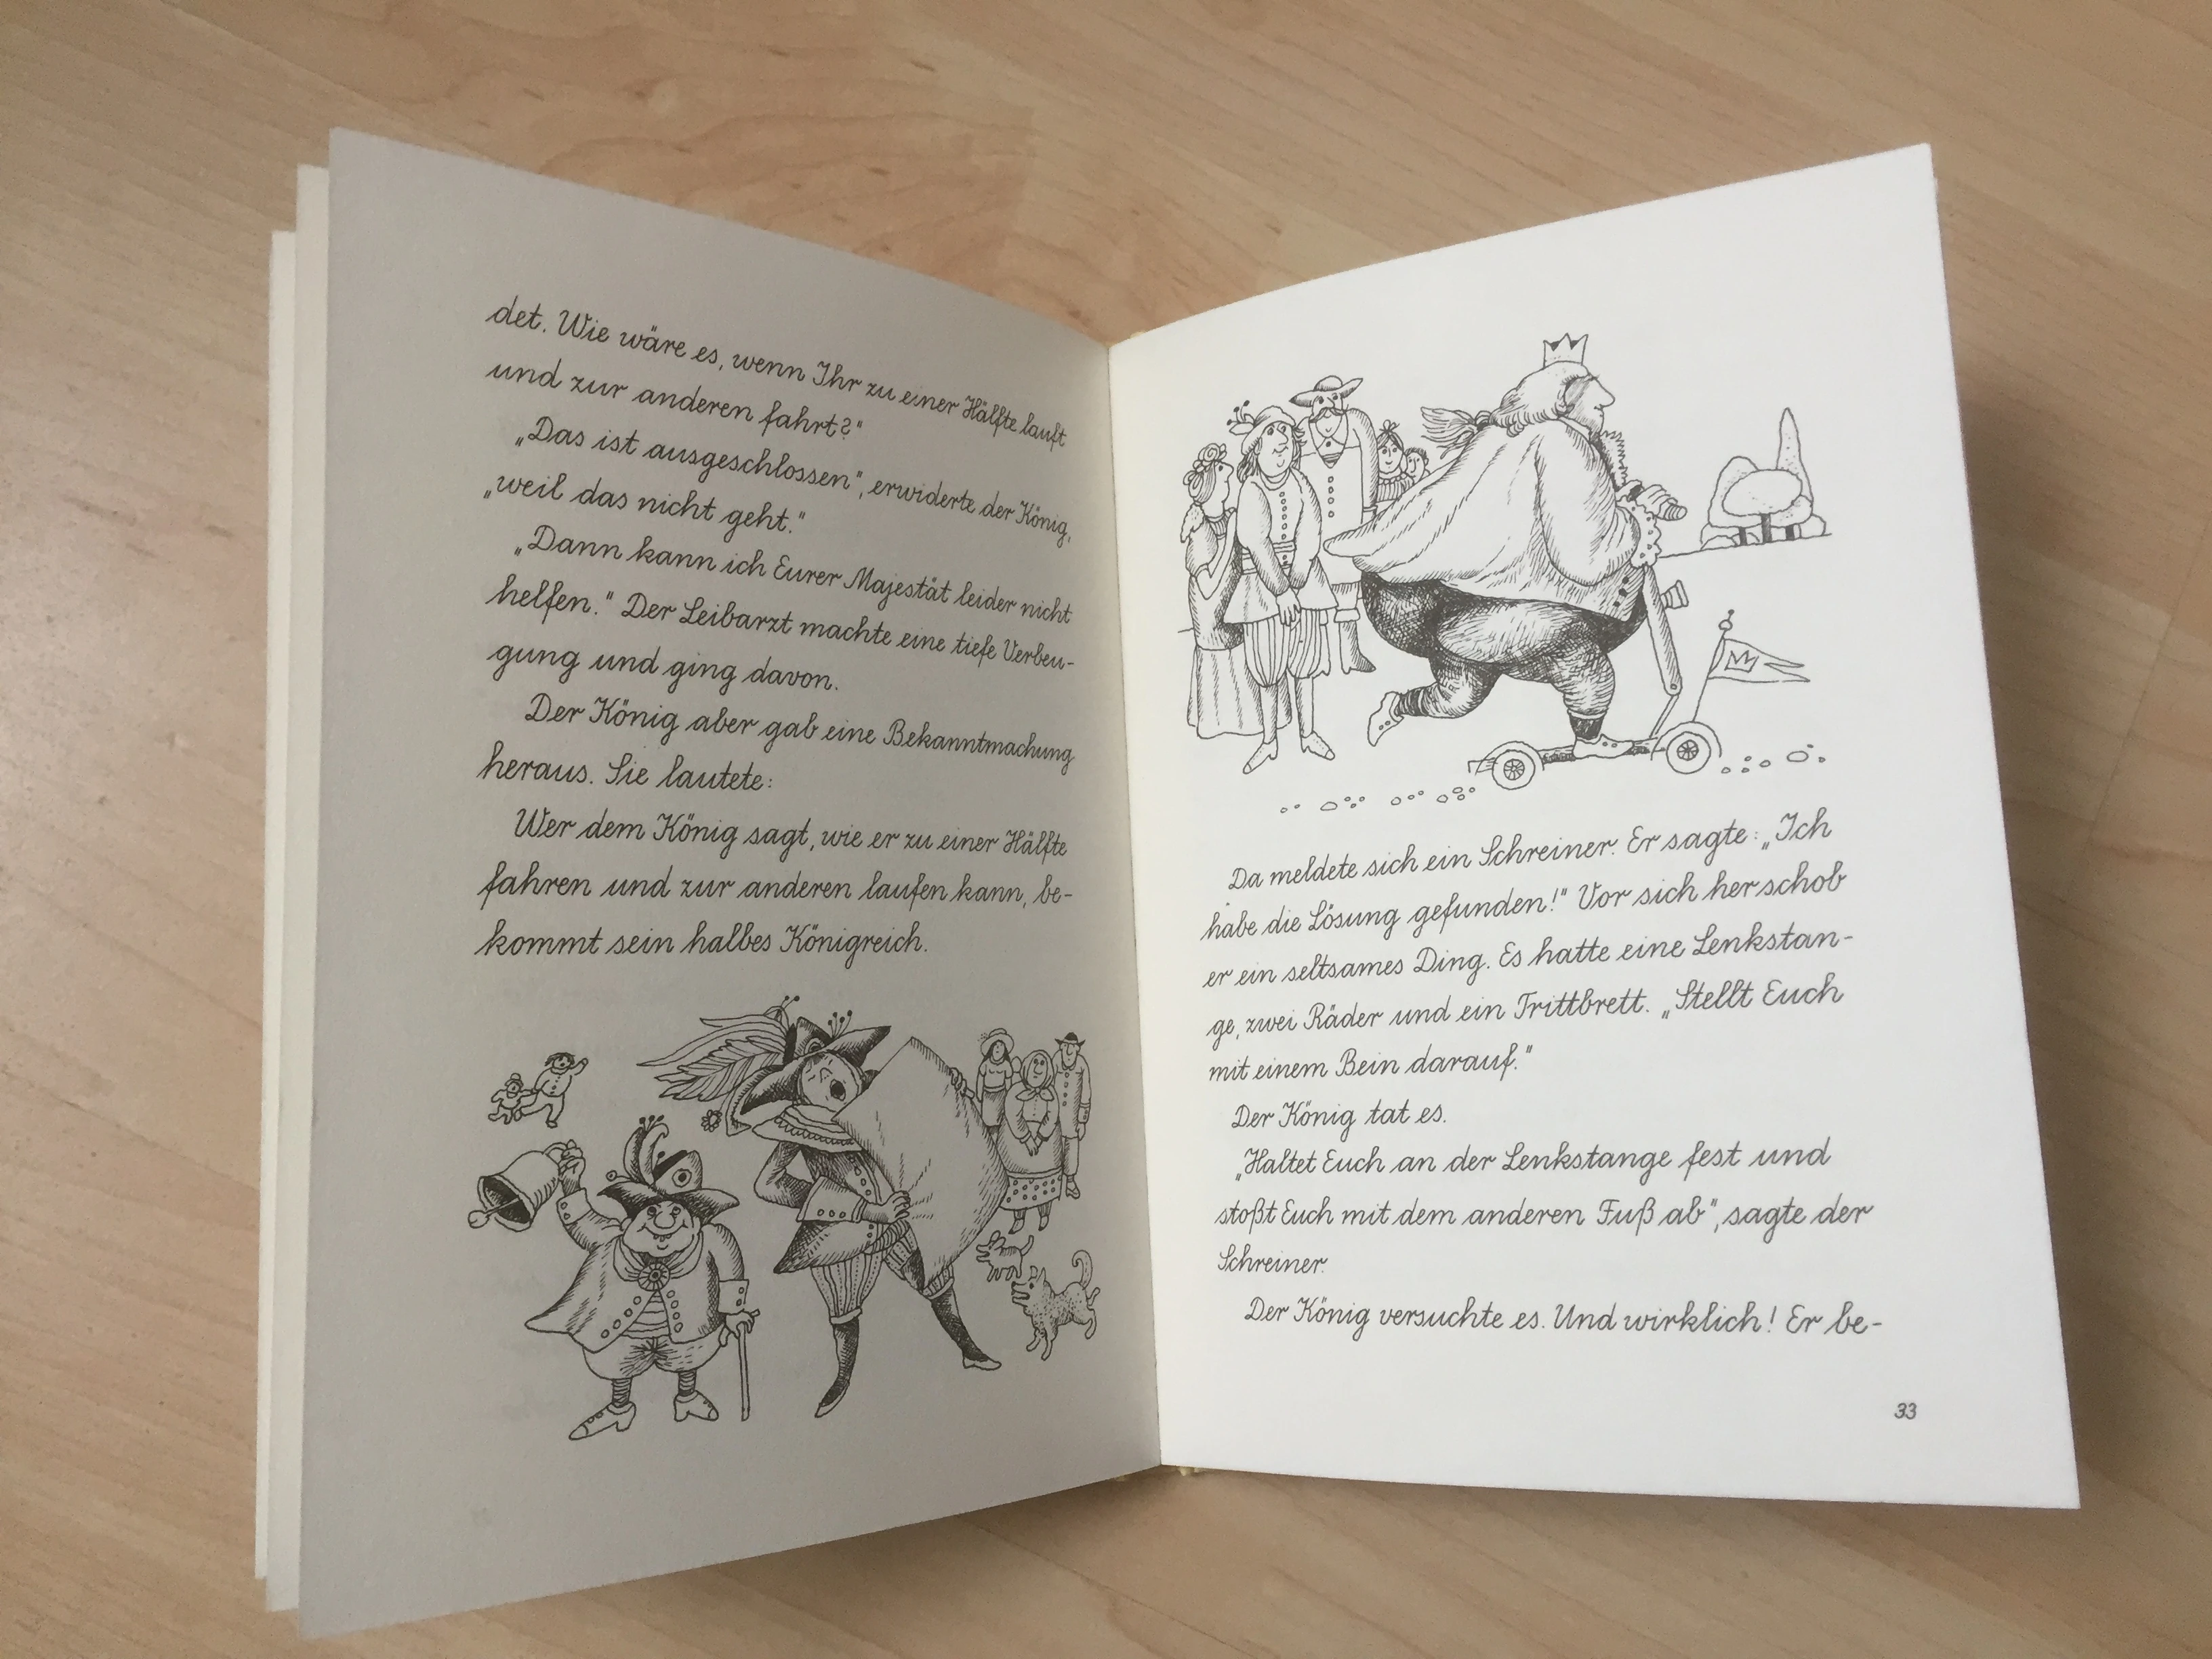 det. Wie wäre es, wenn Ihr zu einer Hälfte lauft
und zur anderen fahrt?“
„Das ist ausgeschlossen“, erwiderte der König,
„weil das nicht geht.“
„Dann kann ich Eurer Majestät leider nicht
helfen.“ Der Leibarzt machte eine tiefe Verbeu-
gung und ging davon.
Der König aber gab eine Bekanntmachung
heraus. Sie lautete:
Wer dem König sagt, wie er zu einer Hälfte
fahren und zur anderen laufen kann, be-
kommt sein halbes Königreich.
Da meldete sich ein Schreiner. Er sagte: „Ich
habe die Lösung gefunden!“ Vor sich her schob
er ein seltsames Ding. Es hatte eine Lenkstan-
ge, zwei Räder und ein Trittbrett. „Stellt Euch
mit einem Bein darauf.“
Der König tat es.
„Haltet Euch an der Lenkstange fest und
stoßt Euch mit dem anderen Fuß ab“, sagte der
Schreiner.
Der König versuchte es. Und wirklich! Er be-
33